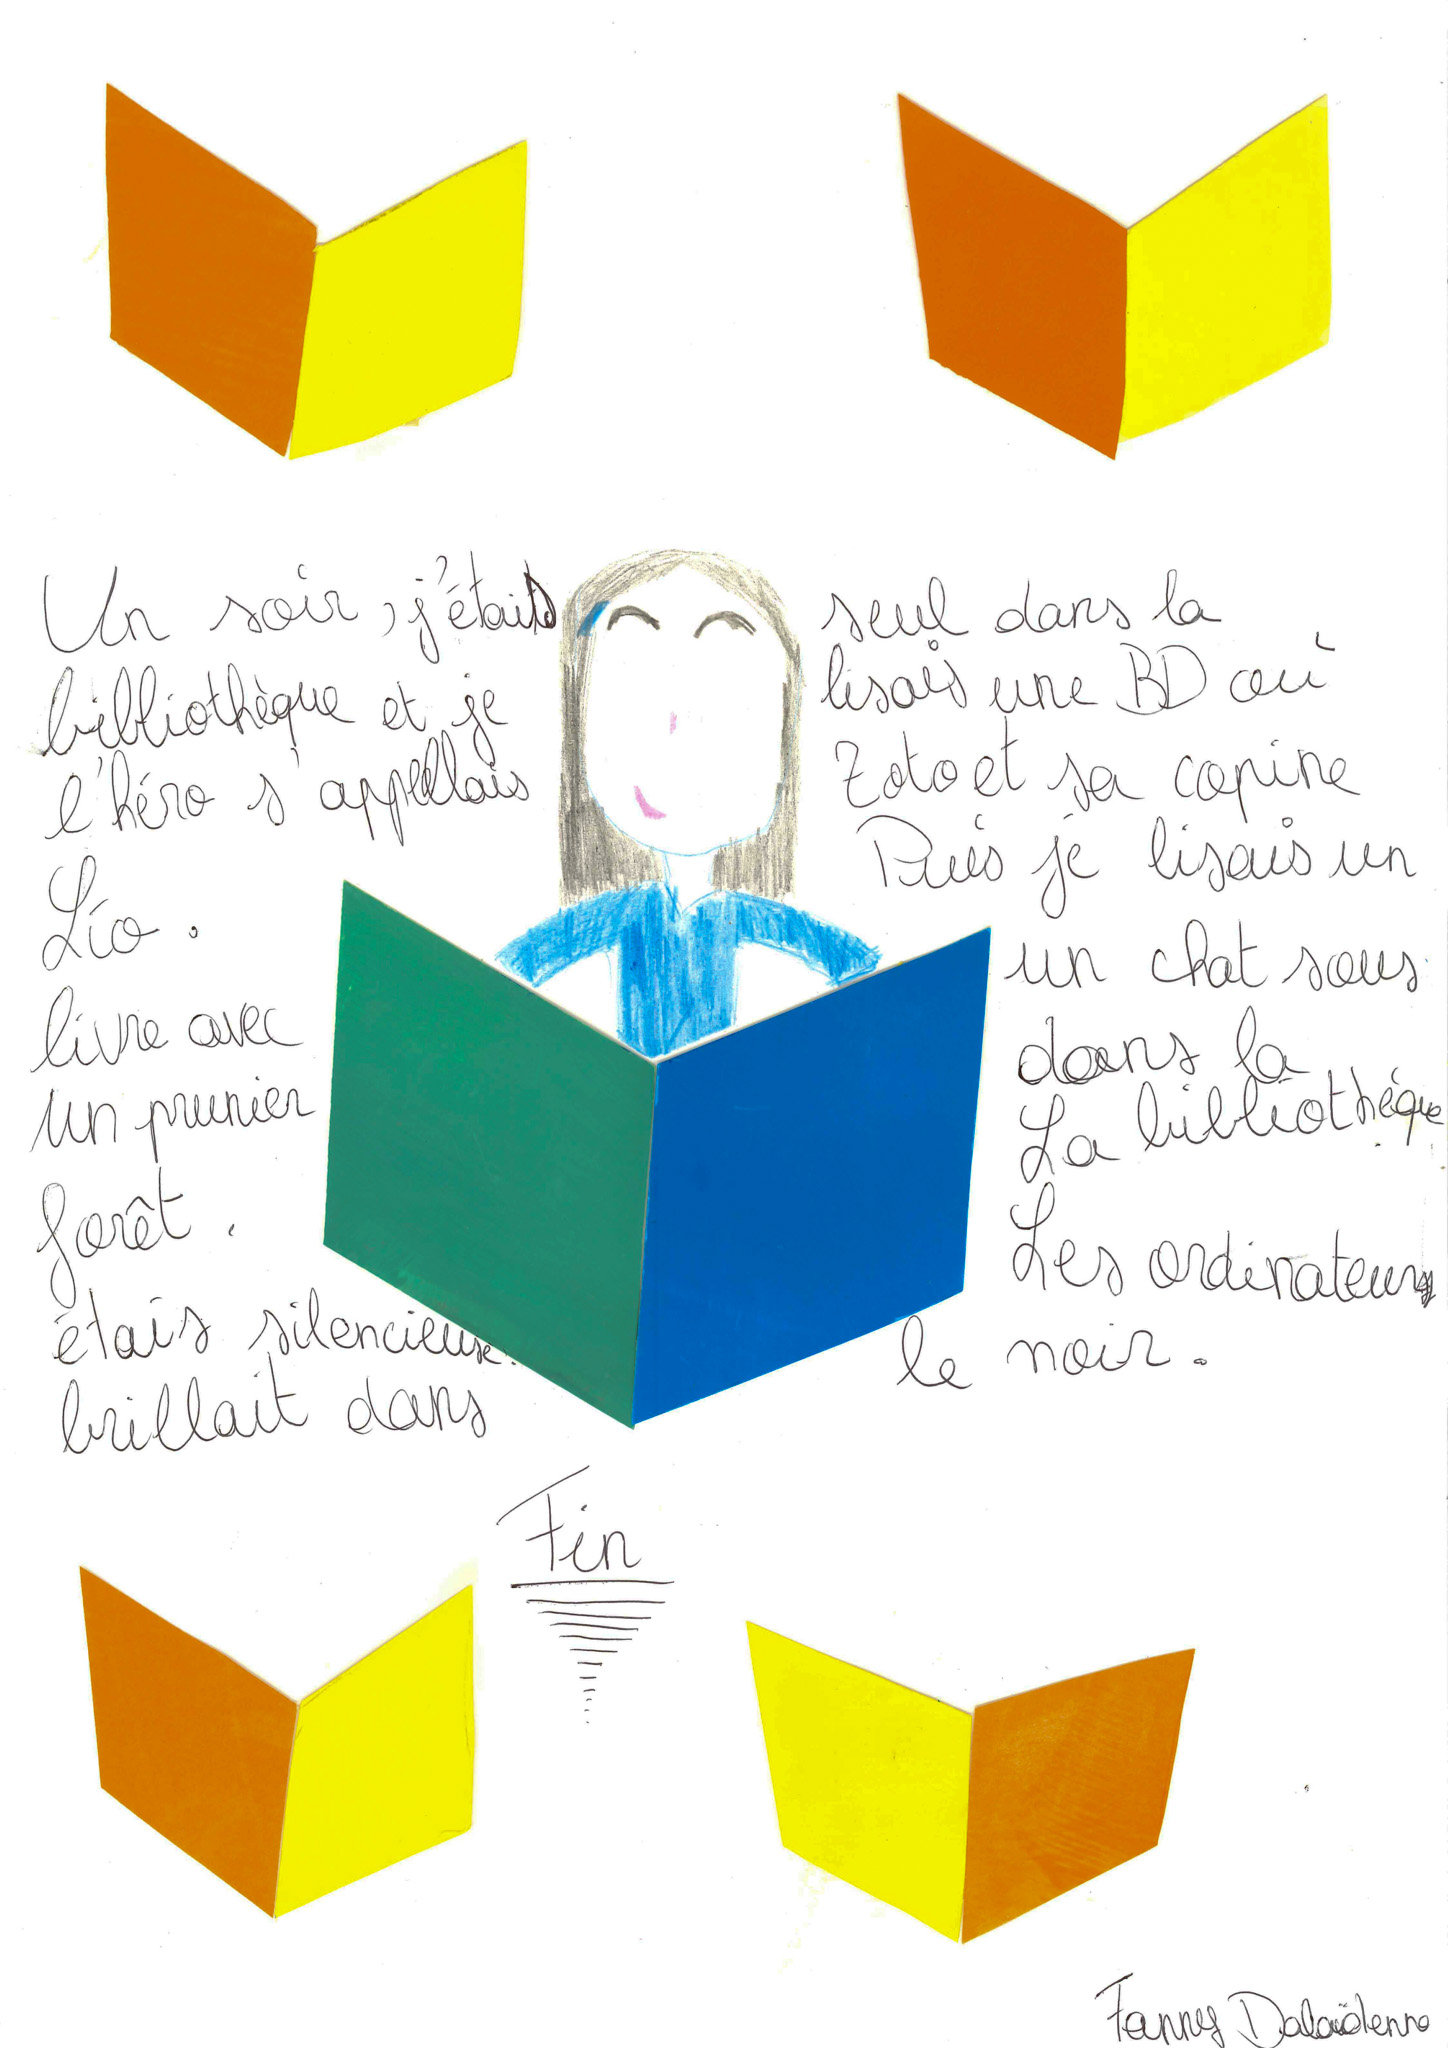 Un soir, j'étais seul dans la
bibliothèque et je lisais une BD où
l'héro s'appellais Zoto et sa copine
Léo. Puis je lisais un
livre avec un chat sous
un prunier dans la
forêt. La bibliothèque
étais silencieuse. Les ordinateurs
brillait dans le noir.
Fin
Fanny